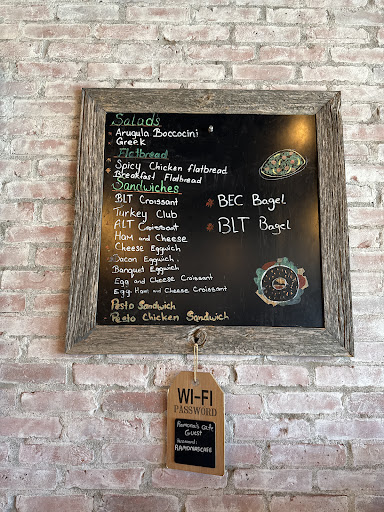 Salads
Arugula Boccocini
Greek
Flatbread
Spicy Chicken flatbread
Breakfast Flatbread
Sandwiches
BLT Croissant
Turkey Club
ALT Croissant
Ham and Cheese
Cheese Eggwich
Bacon Eggwich
Banquet Eggwich
Egg and Cheese Croissant
Egg Ham and Cheese Croissant
Pesto Sandwich
Pesto Chicken Sandwich
BEC Bagel
BLT Bagel
WI-FI
PASSWORD
Ramona's Cafe
Guest
Password:
RAMONASCAFE